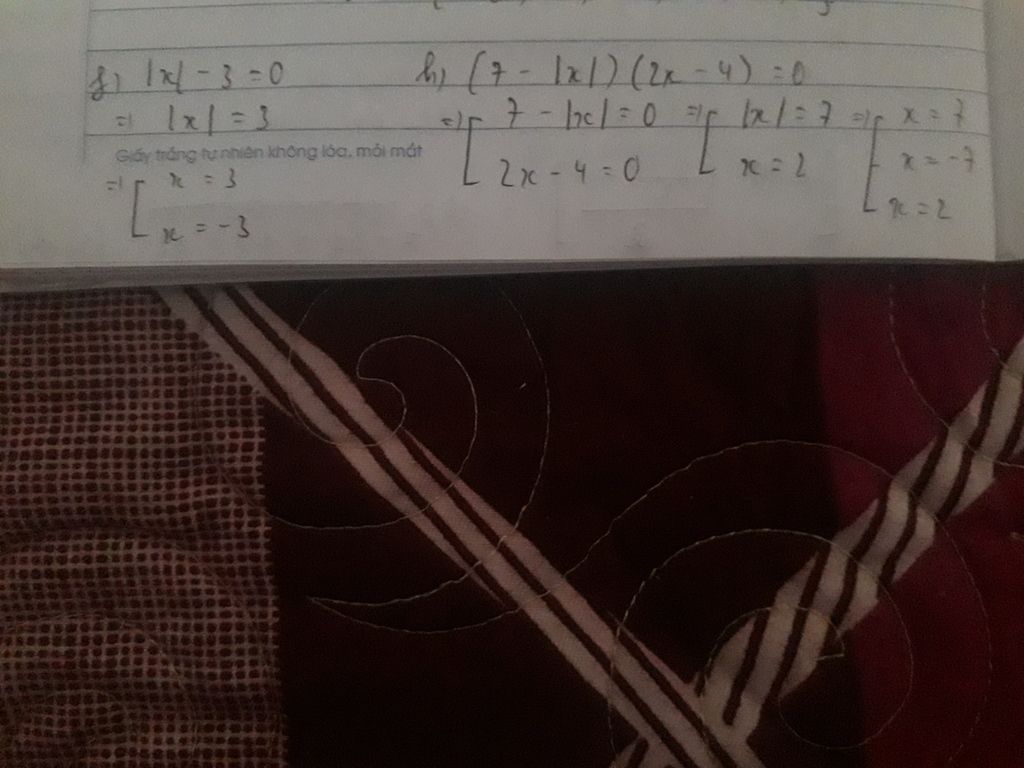 g) |x| - 3 = 0
=> |x| = 3
Giấy trắng tự nhiên không lóa, mỏi mắt
=> [ x = 3
x = -3
h) (7 - |x|) (2x - 4) = 0
=> [ 7 - |x| = 0 => [ |x| = 7 => [ x = 7
2x - 4 = 0 x = 2 x = -7
x = 2